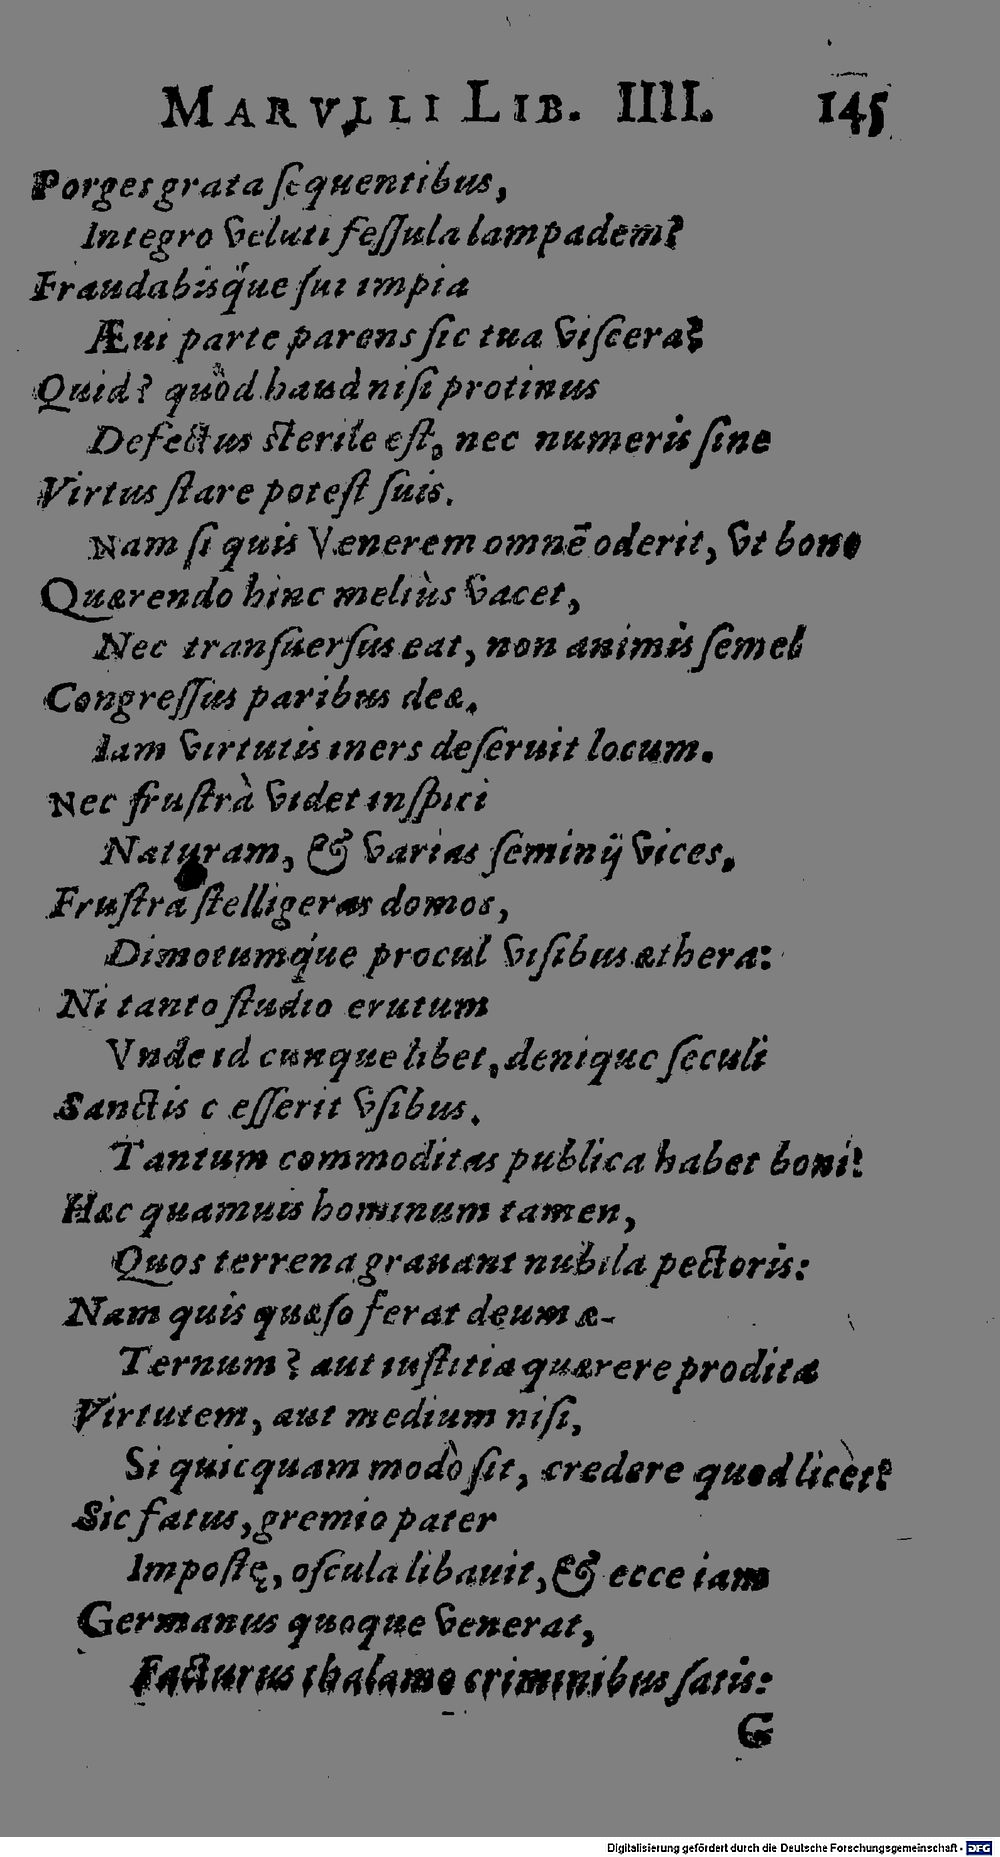 MARVLLI LIB. IIII. 145
Porges grata sequentibus,
Integro veluti fessula lampadem?
Fraudabisq́ue sui impia
Æui parte parens sic tua viscera?
Quid? quòd haud nisi protinus
Defectus sterile est, nec numeris sine
Virtus stare potest suis.
Nam si quis Venerem omnē oderit, vt bono
Quærendo hinc meliùs vacet,
Nec transuersus eat, non animis semel
Congressus paribus deæ,
Iam virtutis iners deseruit locum.
Nec frustrà videt inspici
Naturam, & varias seminij vices,
Frustra stelligeras domos,
Dimotumq́ue procul visibus æthera:
Ni tanto studio erutum
Vnde id cunque libet, denique seculi
Sanctis c esserit vsibus.
Tantum commoditas publica habet boni!
Hæc quamuis hominum tamen,
Quos terrena grauant nubila pectoris:
Nam quis quæso ferat deum æ-
Ternum? aut iustitia quærere prodita
Virtutem, aut medium nisi,
Si quicquam modò sit, credere quod licèt?
Sic fatus, gremio pater
Impostę, oscula libauit, & ecce iam
Germanus quoque venerat,
Facturus thalamo criminibus satis:
G
Digitalisierung gefördert durch die Deutsche Forschungsgemeinschaft - DFG